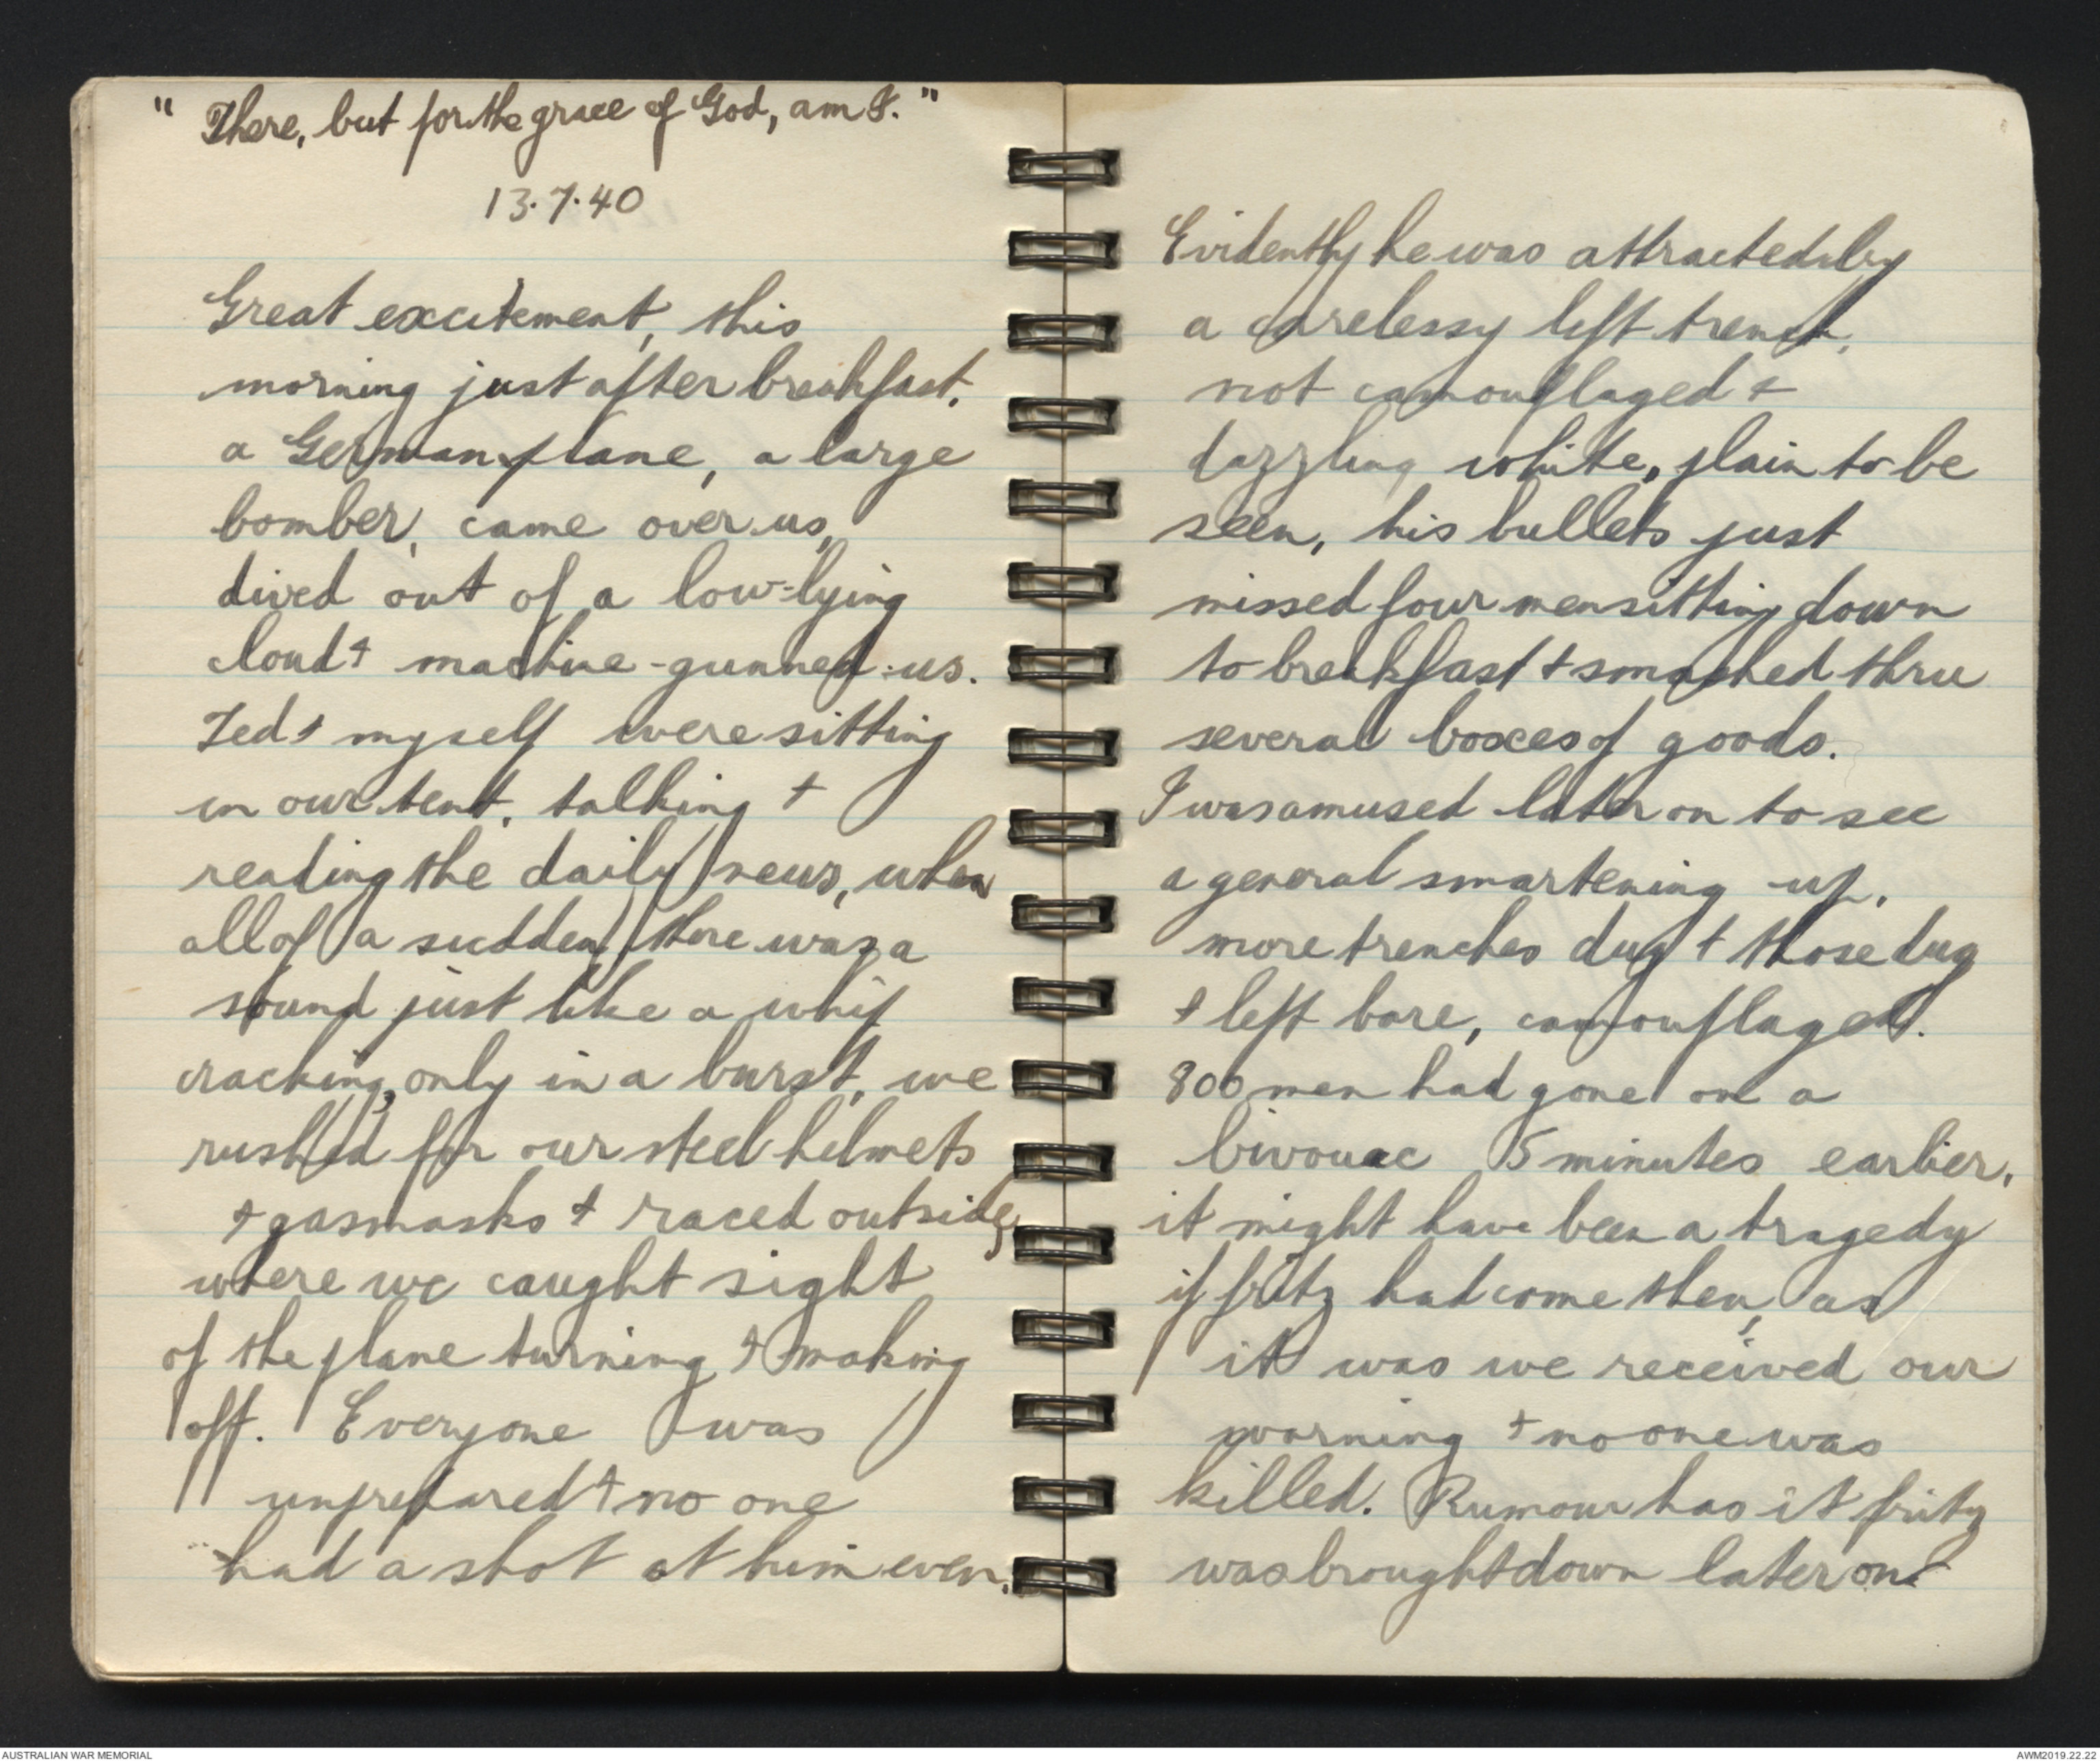 " There, but for the grace of God, am I. "
13.7.40
Great excitement, this
morning just after breakfast,
a German plane, a large
bomber, came over us,
dived out of a low-lying
cloud + machine-gunned us.
Ted + myself were sitting
in our tent, talking +
reading the daily news, when
all of a sudden there was a
sound just like a whip
cracking, only in a burst, we
rushed for our steel helmets
+ gasmasks + raced outside,
where we caught sight
of the plane turning + making
off. Everyone was
unprepared + no one
had a shot at him even.
Evidently he was attracted by
a carelessy left trench,
not camouflaged +
dazzling white, plain to be
seen, his bullets just
missed four men sitting down
to breakfast + smashed thru
several boxes of goods.
I was amused later on to see
a general smartening up,
more trenches dug + those dug
+ left bare, camouflaged.
800 men had gone on a
bivouac 5 minutes earlier,
it might have been a tragedy
if fritz had come then, as
it was we received our
warning + no one was
killed. Rumour has it fritz
was brought down later on.
AUSTRALIAN WAR MEMORIAL
AWM2019.22.22